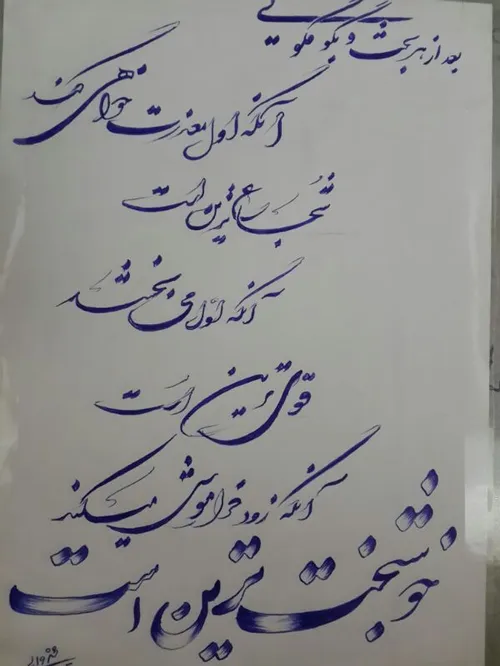 بعد از هر بحث و بگو مگویی
آنکه اول معذرت خواهی کند
شجاع ترین است
آنکه اول می بخشد
قوی ترین است
آنکه زود فراموش میکند
خوشبخت ترین است